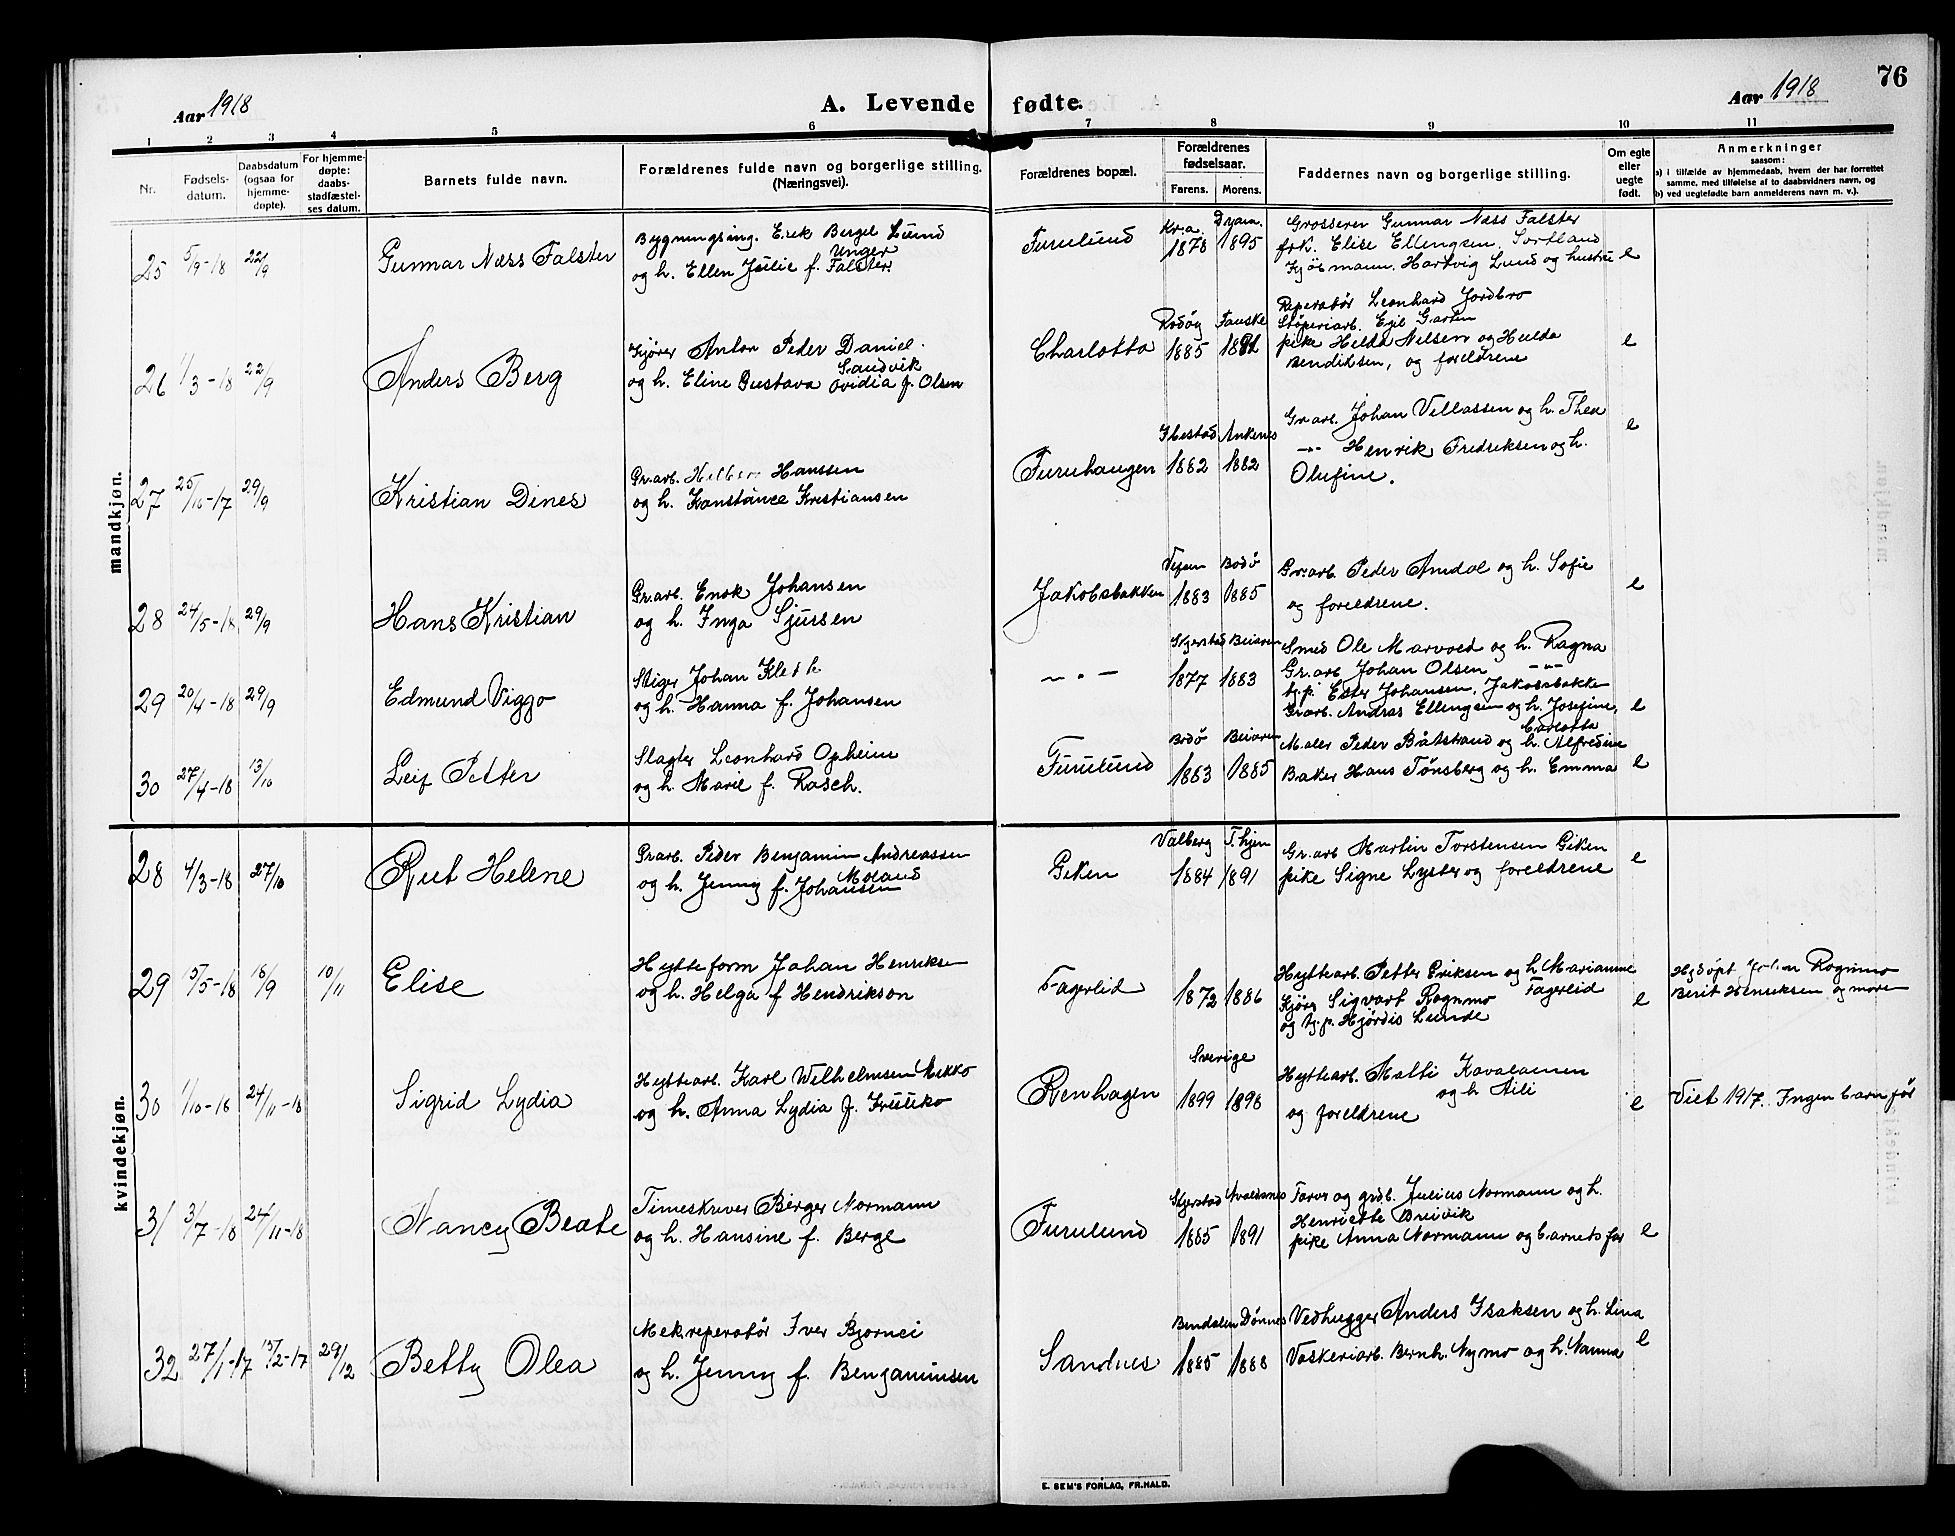 Aar 1918
A. Levende fødte.
Aar 1918
76
1 2 3 4 5 6 7 8 9 10 11
Nr.
Fødsels-
datum.
Daabsdatum
(ogsaa for
hjemme-
døpte).
For hjemme-
døpte:
daabs-
stadfæstel-
ses datum.
Barnets fulde navn.
Forældrenes fulde navn og borgerlige stilling.
(Næringsvei).
Forældrenes bopæl.
Forældrenes
fødselsaar.
Farens. Morens.
Faddernes navn og borgerlige stilling.
Om egte
eller
uegte
født.
Anmerkninger
saasom:
a) i tilfælde av hjemmedaab, hvem der har forrettet
samme, med tilføielse af to daabsvidners navn, og
b) ved uegtefødte barn anmelderens navn m. v.).
mandkjøn.
25 5/9-18 22/9
Gunnar Næss Falster
Bygningsing. Erik Bergel Lund
Unger
og h. Ellen Julie f. Falster
Furulund
Kr.a. Dram.
1878 1895
Grosserer Gunnar Næss Falster
frk. Elise Ellengsen. Sortland
Kjøbmann. Hartvig Lund og hustru
e
26 1/3-18 22/9
Anders Berg
Kjører Anton Peder Daniel
Sandvik
og h. Eline Gustava Ovidia f. Olsen
Charlotta
Rødøy Fauske
1885 1892
Reperatør Leonhard Jordbro
Støperiarb. Egil Garten
pike Helda Nilsen og Hulda
Bendiksen, og foreldrene
e
27 25/10-17 29/9
Kristian Dines
Gr.arb. Hilbert Hanssen
og h. Konstance Kristiansen
Furuhaugen
Ibestad Ankenes
1882 1882
Gr.arb. Johan Villassen og h. Thea
-"- Henrik Fredriksen og h.
Olufine.
e
28 24/5-18 29/9
Hans Kristian
Gr.arb. Enok Johansen
og h. Inga Sjursen
Jakobsbakken
Vefsn Bodø
1883 1885
Gr.arb. Peder Amdal og h. Sofie
og foreldrene.
e
29 20/4-18 29/9
Edmund Viggo
Stiger Johan
og h. Hanna f. Johansen
-"-
Skjerstad Beiaren
1877 1883
Smed Ole Marvold og h. Ragna
Gr.arb Johan Olsen -"-
tj.p. Ester Johansen, Jakobsbakke
Gr.arb. Andras Ellengsen og h. Josefine,
Carlotta
e
30 27/4-18 13/10
Leif Petter
Slagter Leonhard Opheim
og h. Marie f. Rasch.
Furulund
Bodø Beiaren
1883 1885
Maler Peder Båtstrand og h. Alfredine
Baker Hans Tønsberg og h. Emma
e
kvindekjøn.
28 4/3-18 27/10
Rut Helene
Gr.arb. Peder Benjamin Andreassen
Moland
og h. Jenny f. Johansen
Giken
Valberg T.hjem
1884 1891
Gr.arb Martin Torstensen Giken
pike Signe Lyster og foreldrene
e
29 15/5-18 18/9 10/11
Elise
Hytteform Johan Henriksen
og h. Helga f Hendrikson
Fagerlid
1872 1886
Hyttearb. Petter Eriksen og h. Marianne
Fagerlid
Kjøre Sigvart Rognmo
og tj.p. Hjørdis Lunde
e
Hj.døpt Rognmo
Berit Henriksen og moren
30 1/10-18 24/11-18
Sigrid Lydia
Hyttearb. Karl Wilhelmsen Mikko
og h. Anna Lydia f.
Renhagen
Sverige
1899 1898
Hyttearb. Matti
og h Aili
og foreldrene
e
Viet 1917. Ingen barn før
31 3/7-18 24/11-18
Nancy Beate
Timeskriver Birger Normann
og h. Hansine f. Berge
Furulund
Skjerstad Avaldsnes
1885 1891
Farver og grdb. Julius Normann og h.
Henriette Breivik
pike Anna Normann og barnets far
e
32 27/1-17 13/2-17 29/12
Betty Olea
Mek.reperatør Iver Bjørnei
og h. Jenny f. Benjaminsen
Sandnes
Bindalen Dønnes
1885 1888
Vedhugger Anders Isaksen og h. Lina
Vaskeriarb. Bernh. Nymo og h. Nanna
e
E. SEM'S FORLAG, FR.HALD.